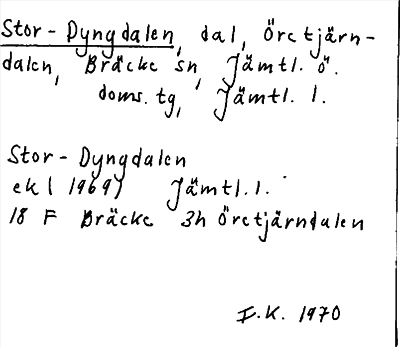 Stor-Dyngdalen, dal, Öretjärn-
dalen, Bräcke sn, Jämtl. ö.
doms. tg, Jämtl. l.
Stor-Dyngdalen
ek (1969) Jämtl. l.
18 F Bräcke 3h Öretjärndalen
I.K. 1970